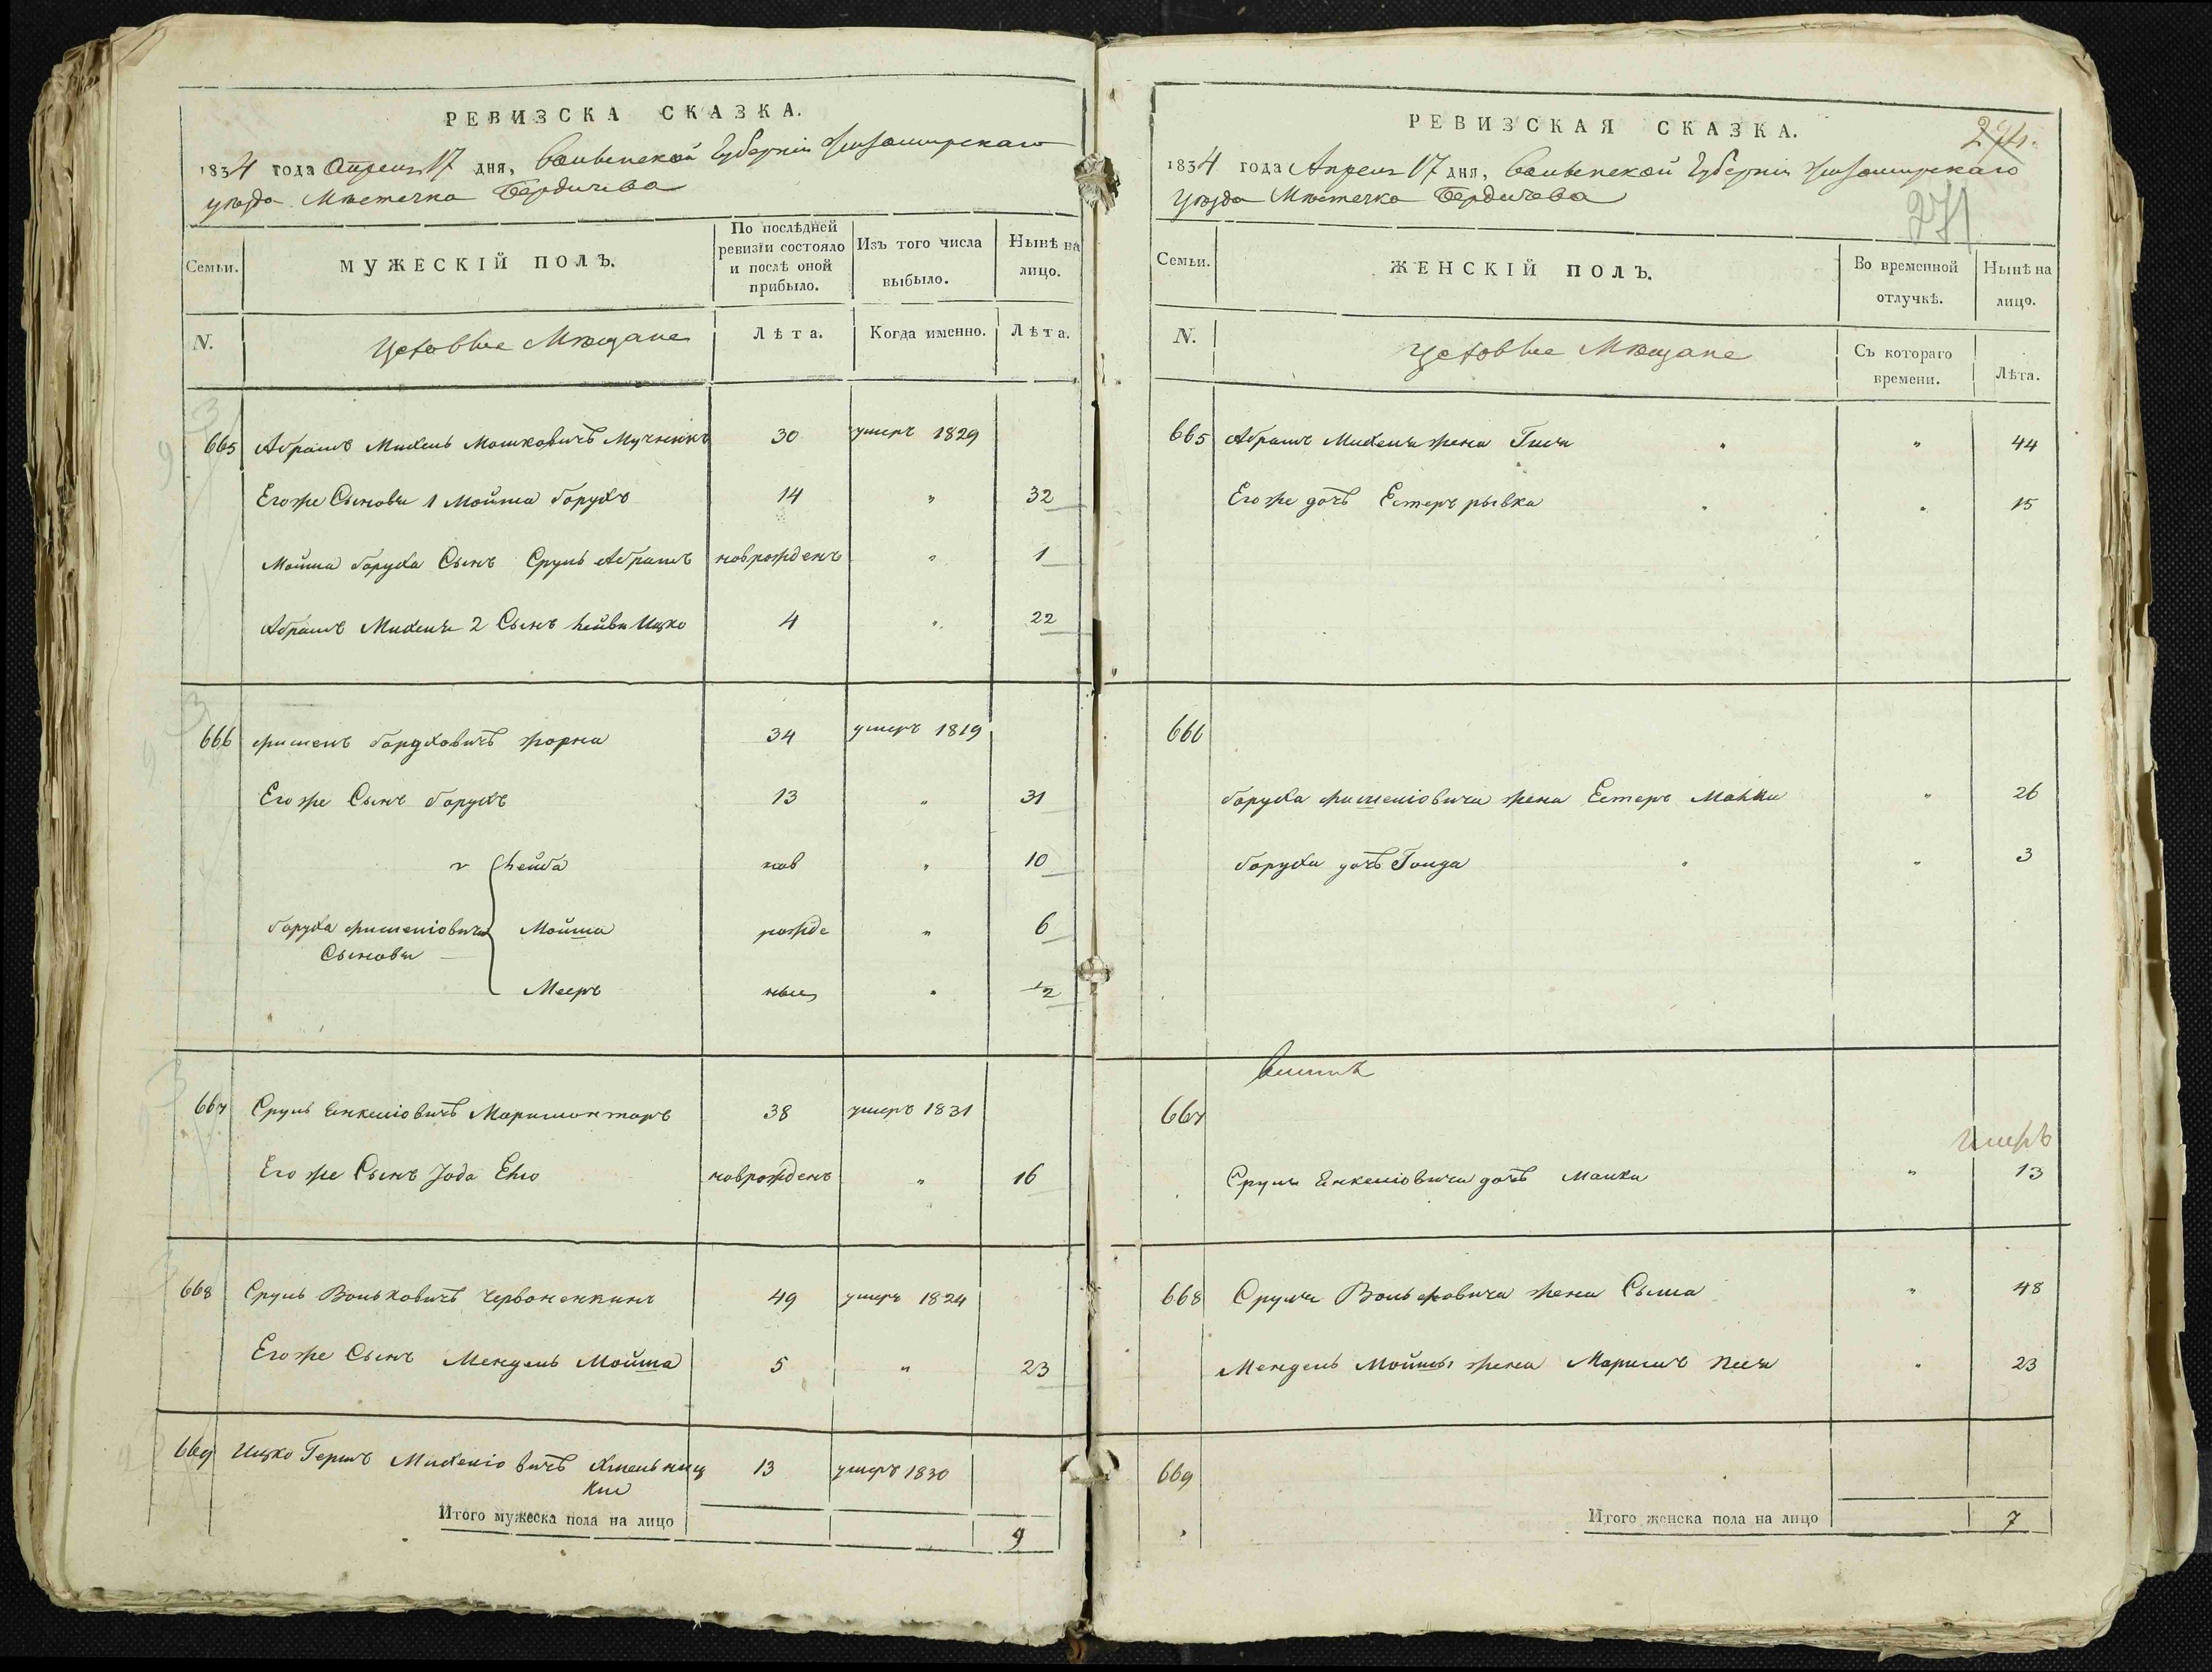 РЕВИЗСКА СКАЗКА.
1834 года Апреля 17 дня, Волынской Губерніи Житомирскаго
уѣзда Мѣстечка Бердичева
Семьи.
МУЖЕСКІЙ ПОЛЪ.
По послѣдней ревизіи состояло и послѣ оной прибыло.
Изъ того числа выбыло.
Нынѣ на лицо.
N.
Цеховые Мѣщане
Лѣта.
Когда именно.
Лѣта.
665 Абрамъ Михель Мошковичъ Мучникъ 30 умеръ 1829
Его же Сыновья 1 Мойша Борухъ 14 " 32
Мойша Боруха Сынъ Сруль Абрамъ новрожденъ " 1
Абрамъ Михеля 2 Сынъ Лейба Ицко 4 " 22
666 Фишель Боруховичъ Жорна 34 умеръ 1819
Его же Сынъ Борухъ 13 " 31
Лейба нов " 10
Боруха Фишеліовича Мойша рожде " 6
Сыновья
Мееръ ные " ½
667 Сруль Янкеліовичъ 38 умеръ 1831
Его же Сынъ новрожденъ " 16
668 Сруль Вольковичъ Червоненкинъ 49 умеръ 1824
Его же Сынъ Мендель Мойша 5 " 23
669 Ицко Гершъ Михеліовичъ Хмельниц 13 умеръ 1830
кій
Итого мужеска пола на лицо 9
РЕВИЗСКАЯ СКАЗКА.
271
1834 года Апреля 17 дня, Волынской Губерніи Житомирскаго
Уѣзда Мѣстечка Бердичева
Семьи.
ЖЕНСКІЙ ПОЛЪ.
Во временной отлучкѣ.
Нынѣ на лицо.
N.
Цеховые Мѣщане
Съ котораго времени.
Лѣта.
665 Абрамъ Михеля жена " 44
Его же дочь Естеръ рывка " 15
666
Боруха Фишеліовича жена Естеръ Малка " 26
Боруха дочь Голда " 3
667
Сруля Янкеліовича дочь Малка " 13
668 Сруля Вольковича жена Сыма " 48
Мендель Мойшы жена " 23
669
Итого женска пола на лицо 7